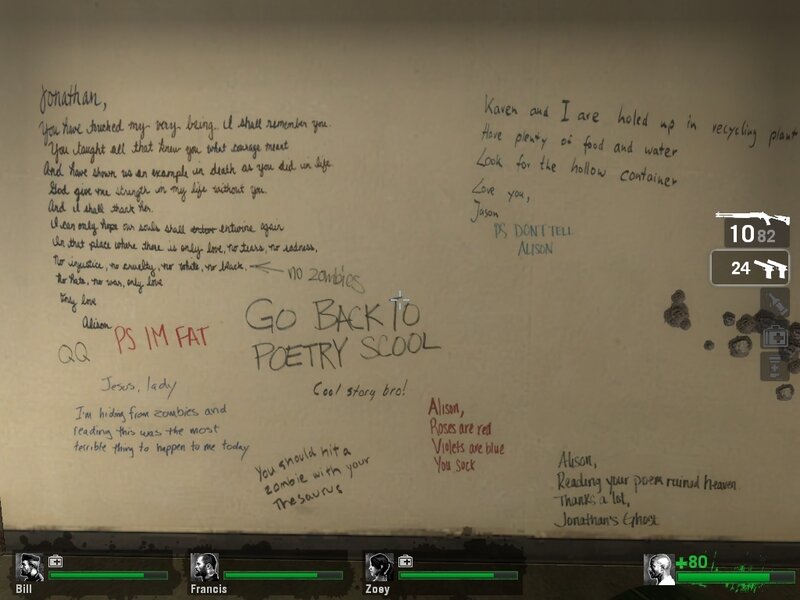 Jonathan,
You have touched my very being. I shall remember you.
You taught all that knew you what courage meant
And have shown us an example in death as you did in life.
God give me strength in my life without you.
And I shall thank her.
I can only hope our souls shall entwine again
In that place where there is only love, no tears, no sadness,
No injustice, no cruelty, no white, no black,
no zombies
No hate, no war, only love
Only love
Alison
PS IM FAT
QQ
GO BACK TO
POETRY SCOOL
Jesus, lady
Cool story bro!
I'm hiding from zombies and
reading this was the most
terrible thing to happen to me today
You should hit a
zombie with your
Thesaurus
Alison,
Roses are red
Violets are blue
You suck
Karen and I are holed up in recycling plant
Have plenty of food and water
Look for the hollow container
Love you,
Jason
PS DON'T TELL
ALISON
Alison,
Reading your poem ruined heaven.
Thanks a lot,
Jonathan's Ghost
10 82
24
Bill
Francis
Zoey
+80